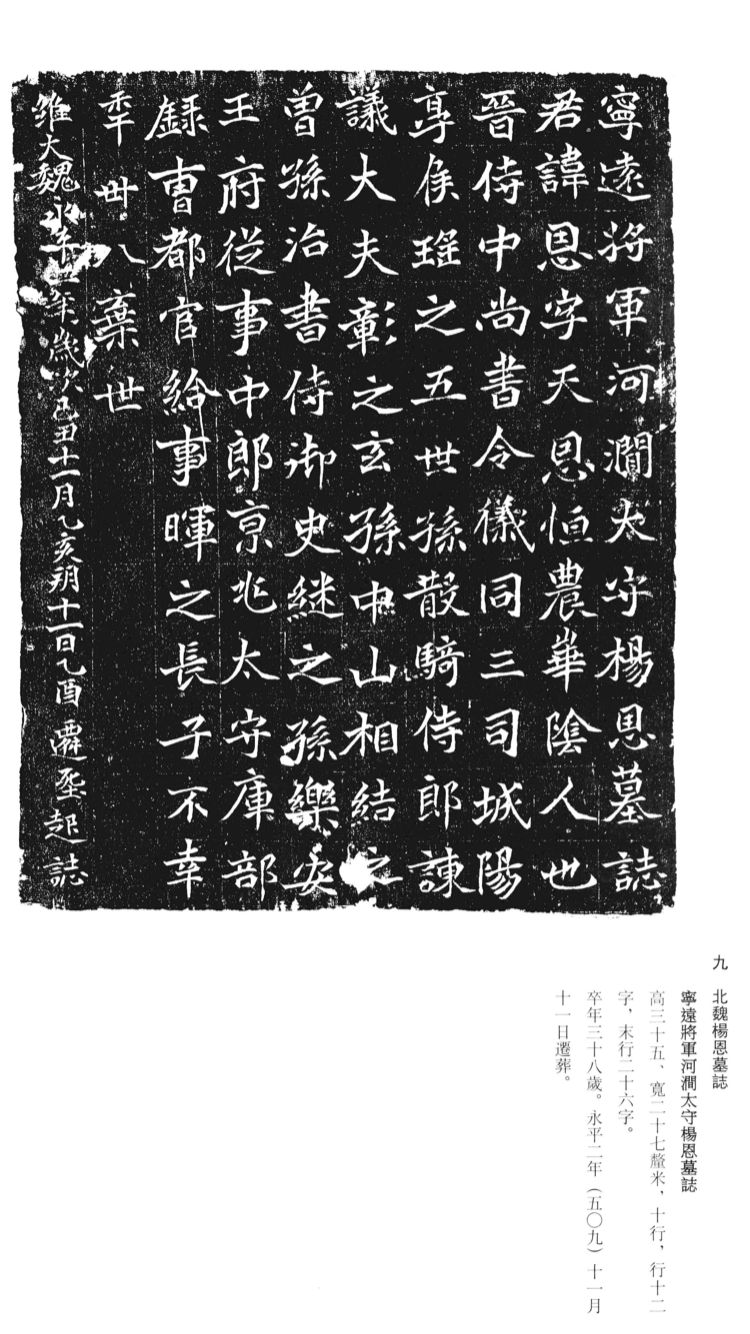 寧遠將軍河澗太守楊恩墓誌
君諱恩字天恩恒農華陰人也
晉侍中尚書令儀同三司城陽
亭侯瑶之五世孫散騎侍郎諫
議大夫彰之玄孫中山相結之
曾孫治書侍御史継之孫樂安
王府従事中郎京兆太守庫部
録曹都官給事暉之長子不幸
年卅八棄世
維大魏永平二年歲次己丑十一月乙亥朔十一日乙酉遷𦵏起誌
九　北魏楊恩墓誌
寧遠將軍河澗太守楊恩墓誌
高三十五、寬二十七釐米，十行，行十二
字，末行二十六字。
卒年三十八歲。永平二年（五〇九）十一月
十一日遷葬。